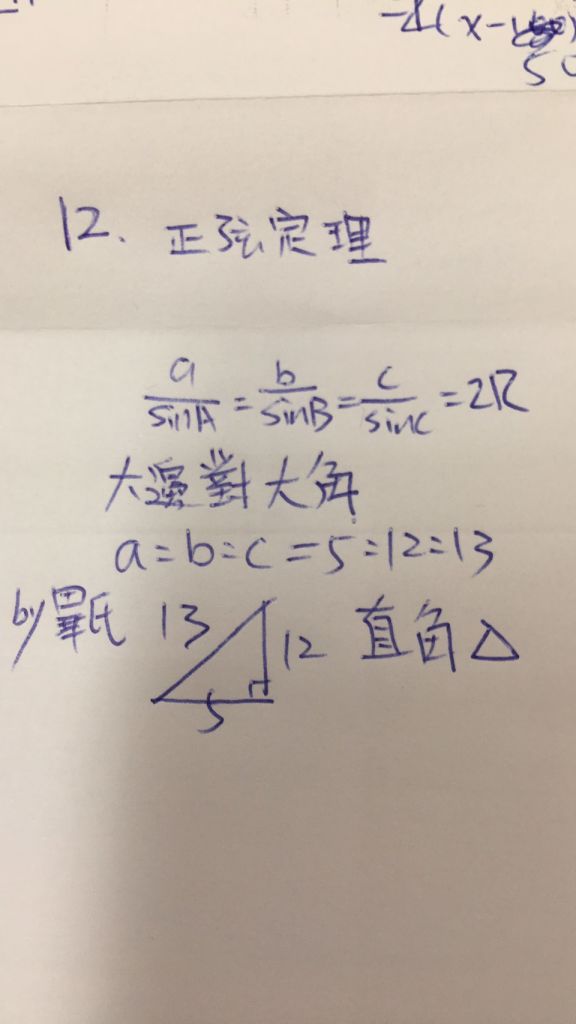 -4(x-
50
12. 正弦定理
a/sinA = b/sinB = c/sinC = 2R
大邊對大角
a:b:c=5:12:13
by 畢氏 13 12 直角△
5